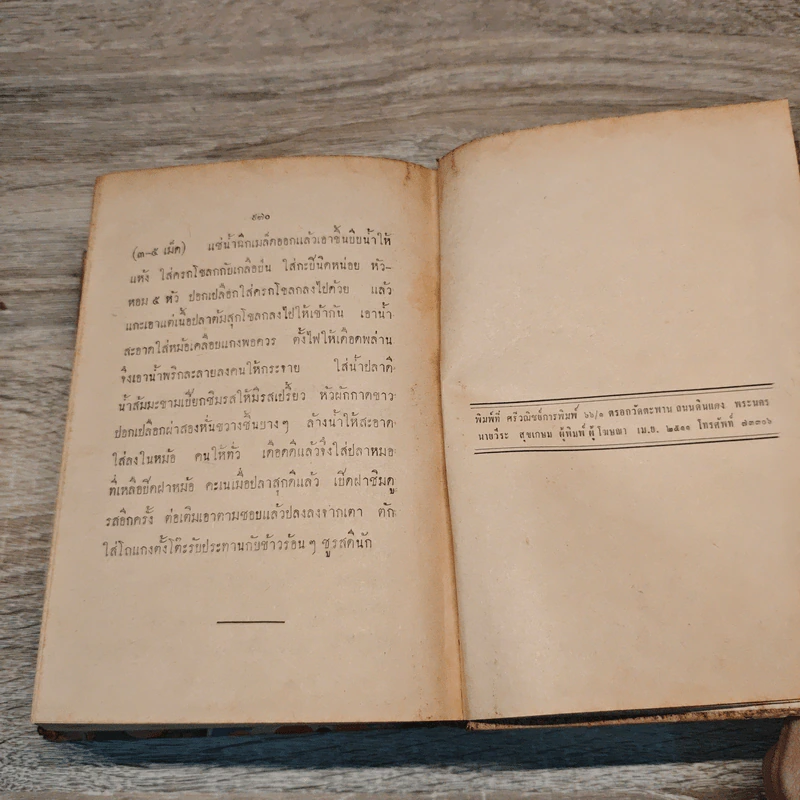 ๙๗๐
(๓–๕ เม็ด) แช่น้ำฉีกเมล็ดออกแล้วเอาขึ้นบีบน้ำให้
แห้ง ใส่ครกโขลกกับเกลือป่น ใส่กะปินิดหน่อย หัว–
หอม ๕ หัว ปอกเปลือกใส่ครกโขลกลงไปด้วย แล้ว
แกะเอาแต่เนื้อปลาต้มสุกโขลกลงไปให้เข้ากัน เอาน้ำ
สะอาดใส่หม้อเคลือบแกงพอควร ตั้งไฟให้เดือดพล่าน
จึงเอาน้ำพริกละลายลงคนให้กระจาย ใส่น้ำปลาดี
น้ำส้มมะขามเปียกชิมรสให้มีรสเปรี้ยว หัวผักกาดขาว
ปอกเปลือกผ่าสองหั่นขวางชิ้นบางๆ ล้างน้ำให้สะอาด
ใส่ลงในหม้อ คนให้ทั่ว เดือดดีแล้วจึงใส่ปลาหมอ
ที่เหลือปิดฝาหม้อ คะเนเมื่อปลาสุกดีแล้ว เปิดฝาชิมดู
รสอีกครั้ง ต่อเติมเอาตามชอบแล้วปลงลงจากเตา ตัก
ใส่โถแกงตั้งโต๊ะรับประทานกับข้าวร้อนๆ ชูรสดีนัก
พิมพ์ที่ ศรีวณิชย์การพิมพ์ ๖๖/๑ ตรอกวัดตะพาน ถนนดินแดง พระนคร
นายวีระ สุขเกษม ผู้พิมพ์ผู้โฆษณา เม.ย. ๒๕๑๑ โทรศัพท์ ๗๓๓๑๖